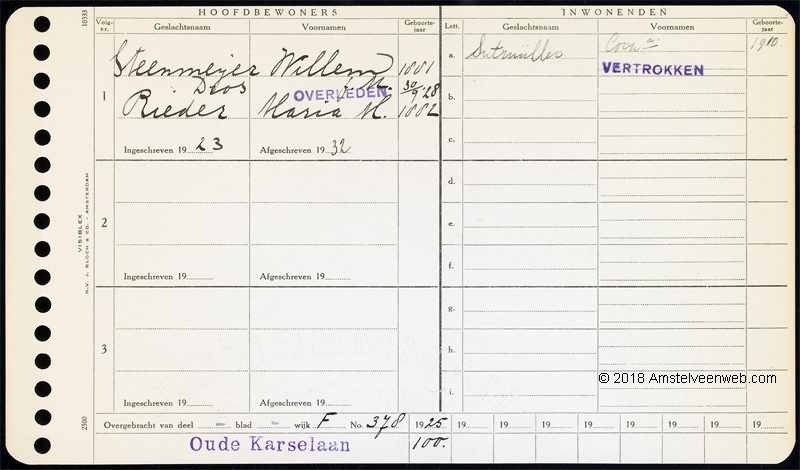 HOOFDBEWONERS
INWONENDEN
10333
Volg-nr.
Geslachtsnaam
Voornamen
Geboorte-jaar
Lett.
Geslachtsnaam
Voornamen
Geboorte-jaar
1
Steenmeijer
Willem
1881
Dros
J. M.
30/9 '28
OVERLEDEN
Rieder
Maria M.
1882
Ingeschreven 19 23
Afgeschreven 19 32
2
Ingeschreven 19
Afgeschreven 19
3
Ingeschreven 19
Afgeschreven 19
a.
Corn a:
1910.
VERTROKKEN
b.
c.
d.
e.
f.
g.
h.
i.
VISIBLEX
N.V. J. BLOCH & CO. - AMSTERDAM
2500
© 2018 Amstelveenweb.com
Overgebracht van deel - blad - wijk F No. 378
1925 19 19 19 19 19 19 19 19
Oude Karselaan
100.